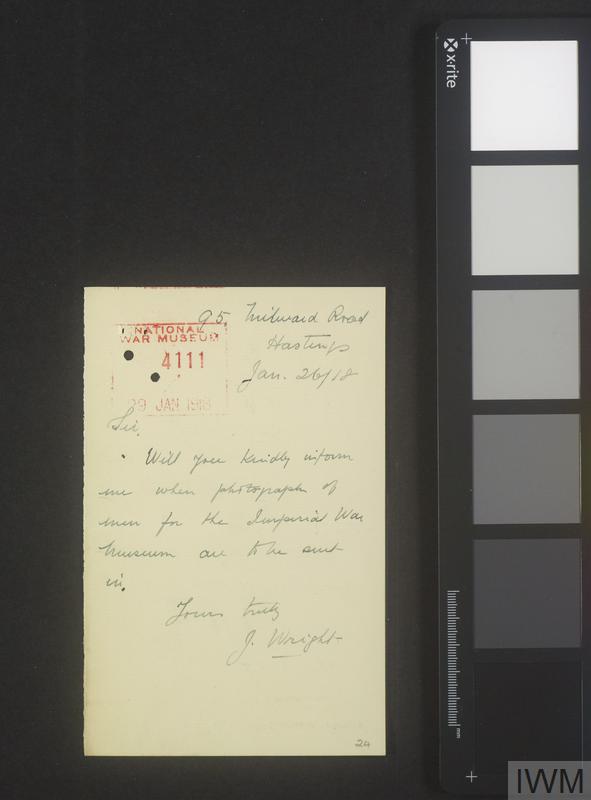 95, Milward Road
Hastings
Jan. 26/18
NATIONAL
WAR MUSEUM
4111
29 JAN 1918
Sir,
Will you kindly inform
me when photographs of
men for the Imperial War
Museum are to be sent
in.
Yours truly
J. Wright
24
x-rite
mm
IWM